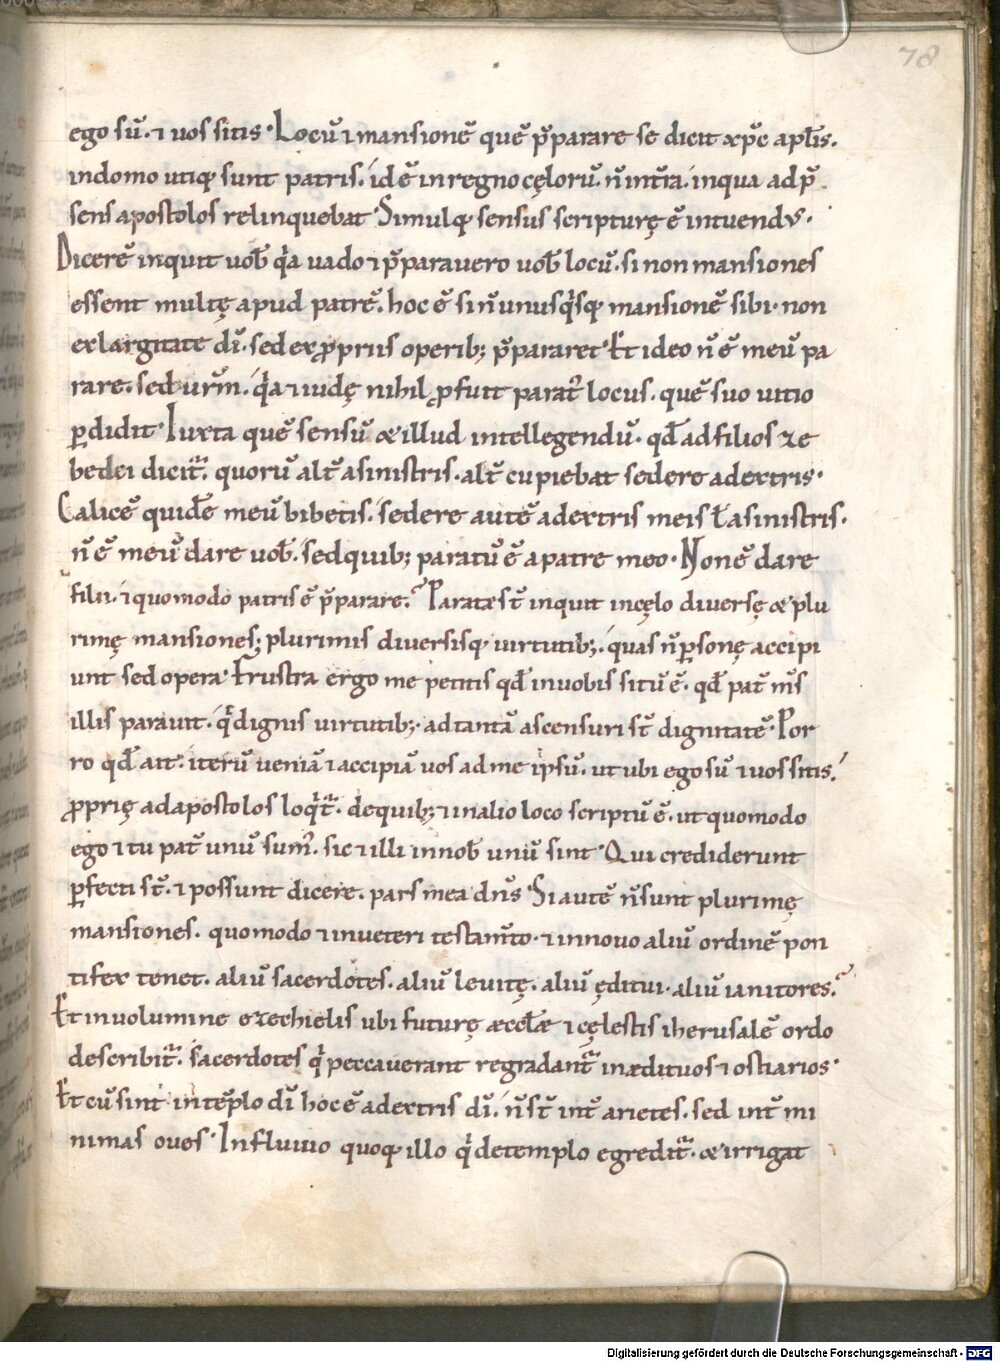 78
ego sū. ⁊ uos sitis · Locū ⁊ mansionē quē p̄parare se dicit xp̄c apłis.
indomo utiq; sunt patris. id ē inregno cęlorū. n̄ int̄ra. inqua ad p̄
sens apostolos relinquebat · Simulq; sensus scripturę ē intuendus ·
Dicerē inquit uob̄ qa uado ⁊ p̄parauero uob̄ locū. si non mansiones
essent multę apud patrē. hoc ē sin̄ unusqsq; mansionē sibi · non
ex largitate dī. sed ex propriis operib; p̄pararet · Et ideo n̄ ē meū pa
rare. sed urm̄. qa ⁊ iudę nihil profuit parat locus. quē suo uitio
ꝑdidit · Iuxta quē sensū & illud intellegendū. qd̄ ad filios ze
bedei dicit. quorū alt̄ asinistris. alt̄ cupiebat sedere adextris ·
Calicē quidē meū bibetis. sedere autē adextris meis ł asinistris ·
n̄ ē meū dare uob̄. sed quib; paratū ē apatre meo · Non ē dare
filii. ⁊ quomodo patris ē p̄parare. Paratæ st̄ inquit incęlo diuersę & plu
rimę mansiones; plurimis diuersisq; uirtutib;. quas n̄ ꝑsonę accipi
unt sed opera · Frustra ergo me petitis qd̄ inuobis sitū ē. qd̄ pat̄ ms̄
illis parauit. q dignis uirtutib; · ad tantā ascensuri st̄ dignitatē · Por
ro qd̄ ait. iterū ueniā ⁊ accipiā uos ad me ipsū. ut ubi ego sū ⁊ uos sitis.
proprię ad apostolos loqt. dequib; ⁊ inalio loco scriptū ē. ut quomodo
ego ⁊ tu pat̄ unū sum. sic ⁊ illi innob̄ unū sint · Qui crediderunt
ꝑfecti st̄. ⁊ possunt dicere. pars mea dn̄s · Si autē n̄ sunt plurimę
mansiones. quomodo ⁊ inueteri testam̄to · ⁊ innouo aliū ordinē pon
tifex tenet. aliū sacerdotes. aliū leuitę. aliū ęditui. aliū ianitores.
Et inuolumine ezechielis ubi futurę æccłæ ⁊ cęlestis iherusalē ordo
describit. sacerdotes q peccauerant regradant inædituos ⁊ ostiarios ·
Et cū sint intēplo dī hoc ē adextris dī. n̄ st̄ int̄ arietes. sed int̄ mi
nimas oues · Influuio quoq; illo q detemplo egredit. & irrigat
Digitalisierung gefördert durch die Deutsche Forschungsgemeinschaft - DFG